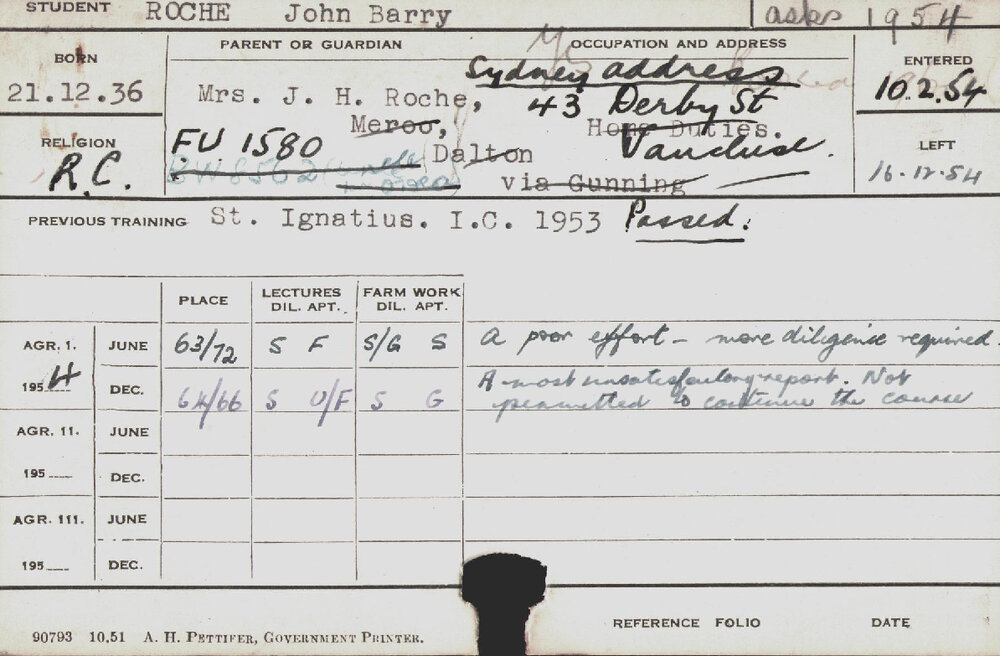 STUDENT ROCHE John Barry asks 1954
BORN PARENT OR GUARDIAN OCCUPATION AND ADDRESS ENTERED
Sydney address
21.12.36 Mrs. J. H. Roche, 43 Derby St 10.2.54
Meroo, Home Duties.
RELIGION FU 1580 Dalton Vaucluse. LEFT
R.C. BW8562 via Gunning 16.12.54
PREVIOUS TRAINING St. Ignatius. I.C. 1953 Passed.
PLACE LECTURES FARM WORK
DIL. APT. DIL. APT.
AGR. 1. JUNE 63/72 S F S/G S A poor effort – more diligence required.
1954 DEC. 64/66 S U/F S G A most unsatisfactory report. Not
permitted to continue the course
AGR. 11. JUNE
195 DEC.
AGR. 111. JUNE
195 DEC.
REFERENCE FOLIO DATE
90793 10.51 A. H. PETTIFER, GOVERNMENT PRINTER.